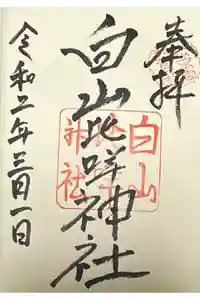 奉拝
白山比咩神社
令和二年三月一日
白山
神社